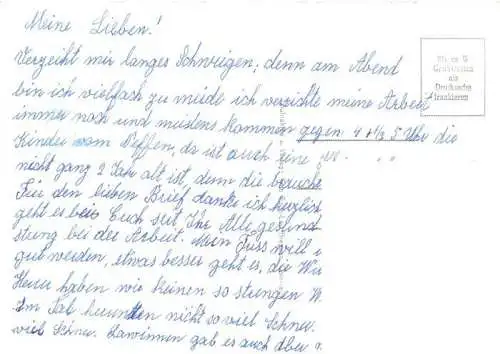 Meine Lieben!
Verzeiht mir langes Schweigen, denn am Abend
bin ich vielfach zu müde ich verrichte meine Arbeit
immer noch und meistens kommen gegen 4 + ½ 5 Uhr die
Kinder vom Neffen, da ist auch eine
nicht ganz 2 Jahr alt ist, denn die brauche
Für den lieben Brief danke ich herzlich
geht es bei Euch seit Ihr Alle gesund
stung bei der Arbeit. Mein Fuss will
gut werden, etwas besser geht es, die
Heuer haben wir keinen so strengen W
Im Tal herunten nicht so viel Schnee.
viel Schnee. Lawinen gab es auch aber
als
Drucksache
frankieren